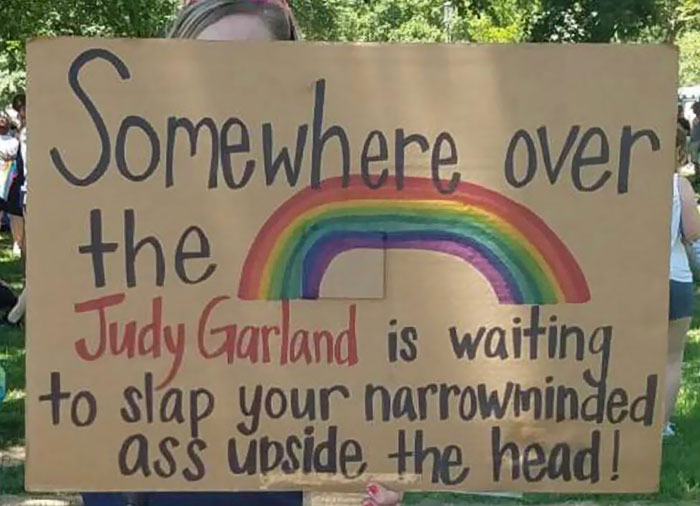 Somewhere over
the
Judy Garland is waiting
to slap your narrowminded
ass upside the head!